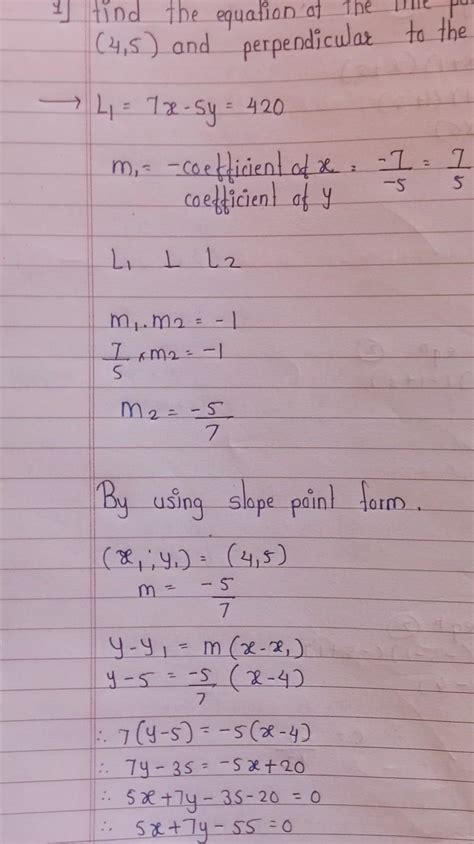 1] find the equation of the line
(4,5) and perpendicular to the
→ L1 = 7x-5y = 420
m1 = -coefficient of x / coefficient of y = -7/-5 = 7/5
L1 ⊥ L2
m1.m2 = -1
7/5 × m2 = -1
m2 = -5/7
By using slope point form.
(x1, y1) = (4,5)
m = -5/7
y-y1 = m(x-x1)
y-5 = -5/7 (x-4)
∴ 7(y-5) = -5(x-4)
∴ 7y-35 = -5x+20
∴ 5x+7y-35-20 = 0
∴ 5x+7y-55 = 0